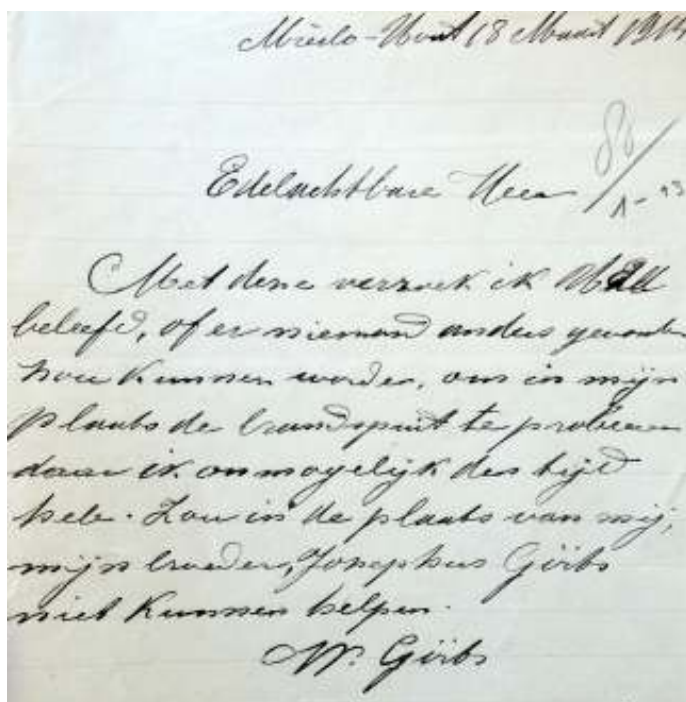 Mierlo-Hout 18 Maart 191
80/
1-13
Edelachtbare Heer
Met deze verzoek ik UEd
beleefd, of er niemand anders gevonden
zou kunnen worden, om in mijn
plaats de brandspuit te probeeren
daar ik onmogelijk den tijd
heb. Zou in de plaats van mij,
mijn broeder, Josephus Görbs
niet kunnen helpen.
W. Görbs